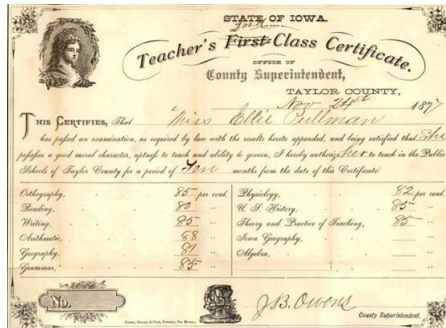 STATE OF IOWA.
2nd
Teacher's First Class Certificate.
OFFICE OF
County Superintendent,
TAYLOR COUNTY,
Nov 24th 1877
THIS CERTIFIES, That Miss Ellie Pullman
has passed an examination, as required by law with the results hereto appended, and being satisfied that She
possesses a good moral character, aptness to teach and ability to govern, I hereby authorize her to teach in the Public
Schools of Taylor County for a period of Ten months from the date of this Certificate
Orthography, 85 per cent. Physiology, 82 per cent.
Reading, 80 " U. S. History, 85 "
Writing, 85 " Theory and Practice of Teaching, 85 "
Arithmetic, 88 " Iowa Geography, "
Geography, 81 " Algebra, "
Grammar, 85 "
No.
J. B. Owens
County Superintendent.